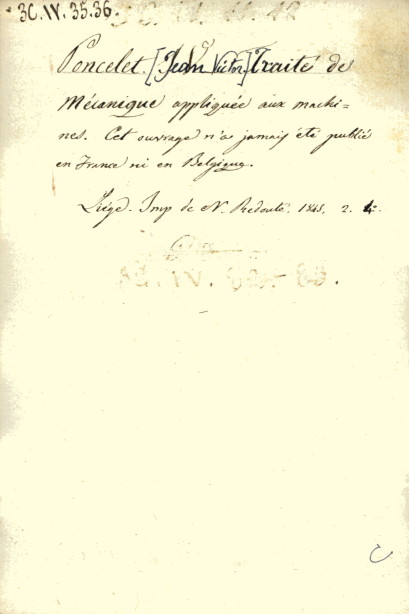 3C. IV. 35.36.
Poncelet [Jean Victor] Traité de
Mécanique appliquée aux machi=
nes. Cet ouvrage n'a jamais été publié
en France ni en Belgique.
Liége. Imp de N. Redouté. 1845, 2.